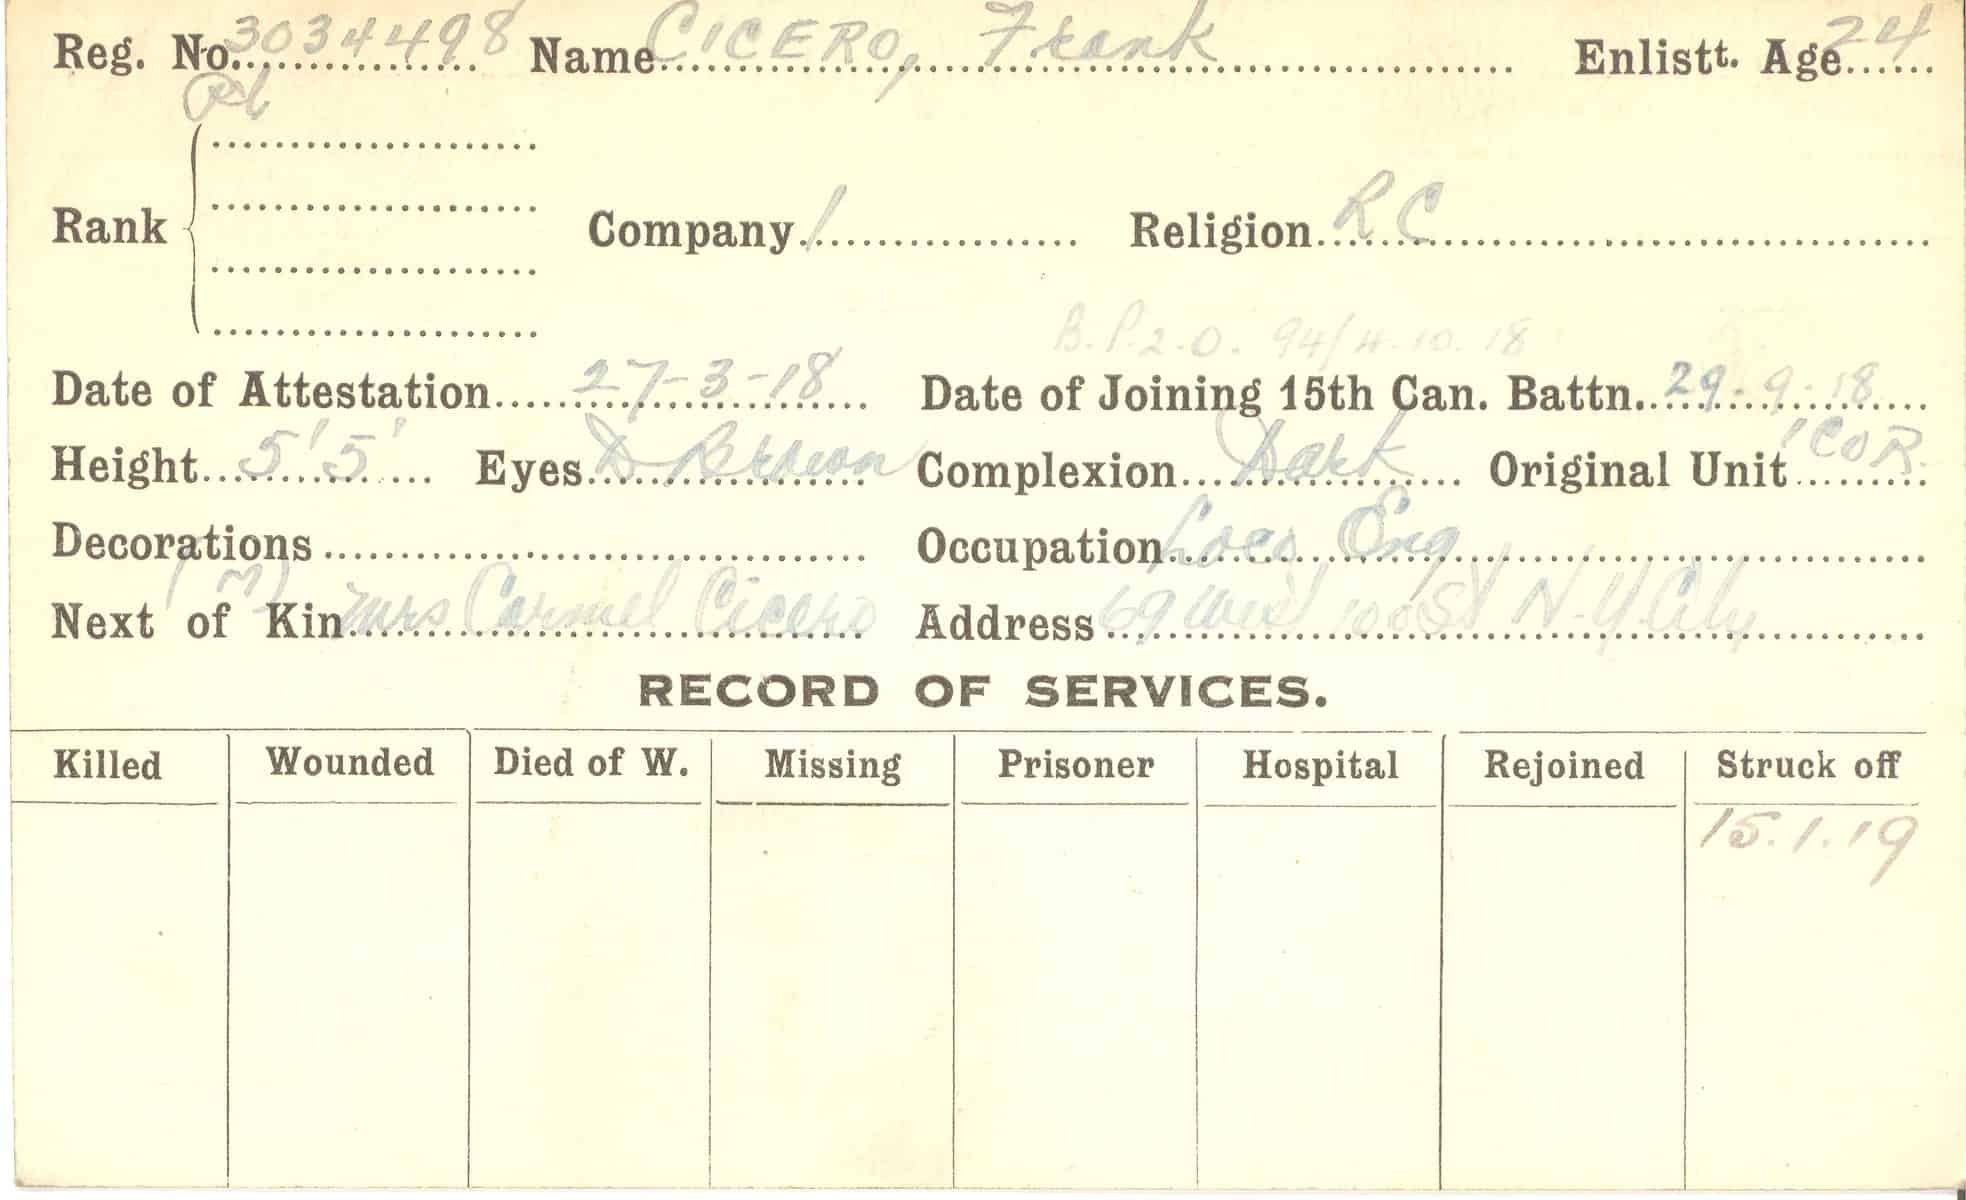 Reg. No. 3034498 Name CICERO, Frank Enlistt. Age 24
Pt
Rank Company 1 Religion R C
B.P.2.O. 94/4.10.18
Date of Attestation 27-3-18 Date of Joining 15th Can. Battn. 29-9-18
Height 5'5' Eyes D Brown Complexion Dark Original Unit 1COR.
Decorations Occupation Loco Eng
(M)
Next of Kin Mrs Carmel Cicero Address 69 West 100 St N.Y. City
RECORD OF SERVICES.
Killed Wounded Died of W. Missing Prisoner Hospital Rejoined Struck off
15.1.19